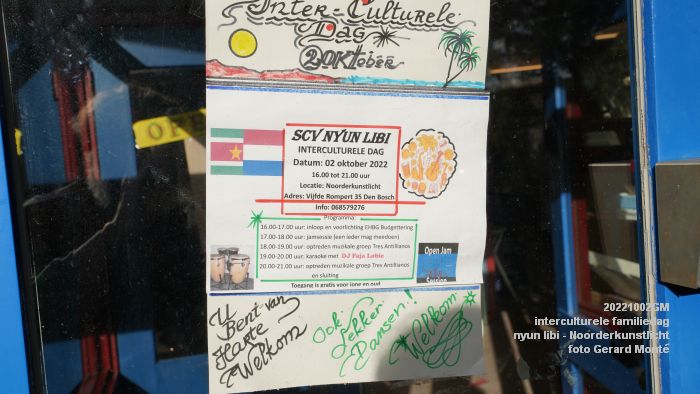 Inter-Culturele
Dag
2 Oktober
SCV NYUN LIBI
INTERCULTURELE DAG
Datum: 02 oktober 2022
16.00 tot 21.00 uur
Locatie: Noorderkunstlicht
Adres: Vijfde Rompert 35 Den Bosch
Info: 068579276
Programma:
16.00-17.00 uur: inloop en voorlichting EHBG Budgettering
17.00-18.00 uur: jamsessie (een ieder mag meedoen)
18.00-19.00 uur: optreden muzikale groep Tres Antillianos
19.00-20.00 uur: karaoke met DJ Faja Lobie
20.00-21.00 uur: optreden muzikale groep Tres Antillianos
en sluiting
Toegang is gratis voor jong en oud
Open Jam
Session
U
Bent van
Harte
Welkom
Ook
Lekker
Dansen!
Welkom
20221002GM
interculturele familiedag
nyun libi - Noorderkunstlicht
foto Gerard Monté